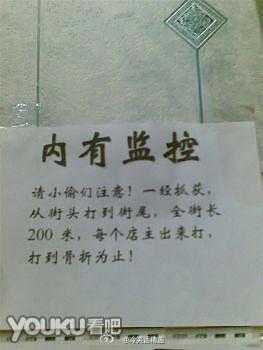 内有监控
请小偷们注意！一经抓获，
从街头打到街尾，全街长
200 米，每个店主出来打，
打到骨折为止！
YOUKU看吧
@冷笑话精选